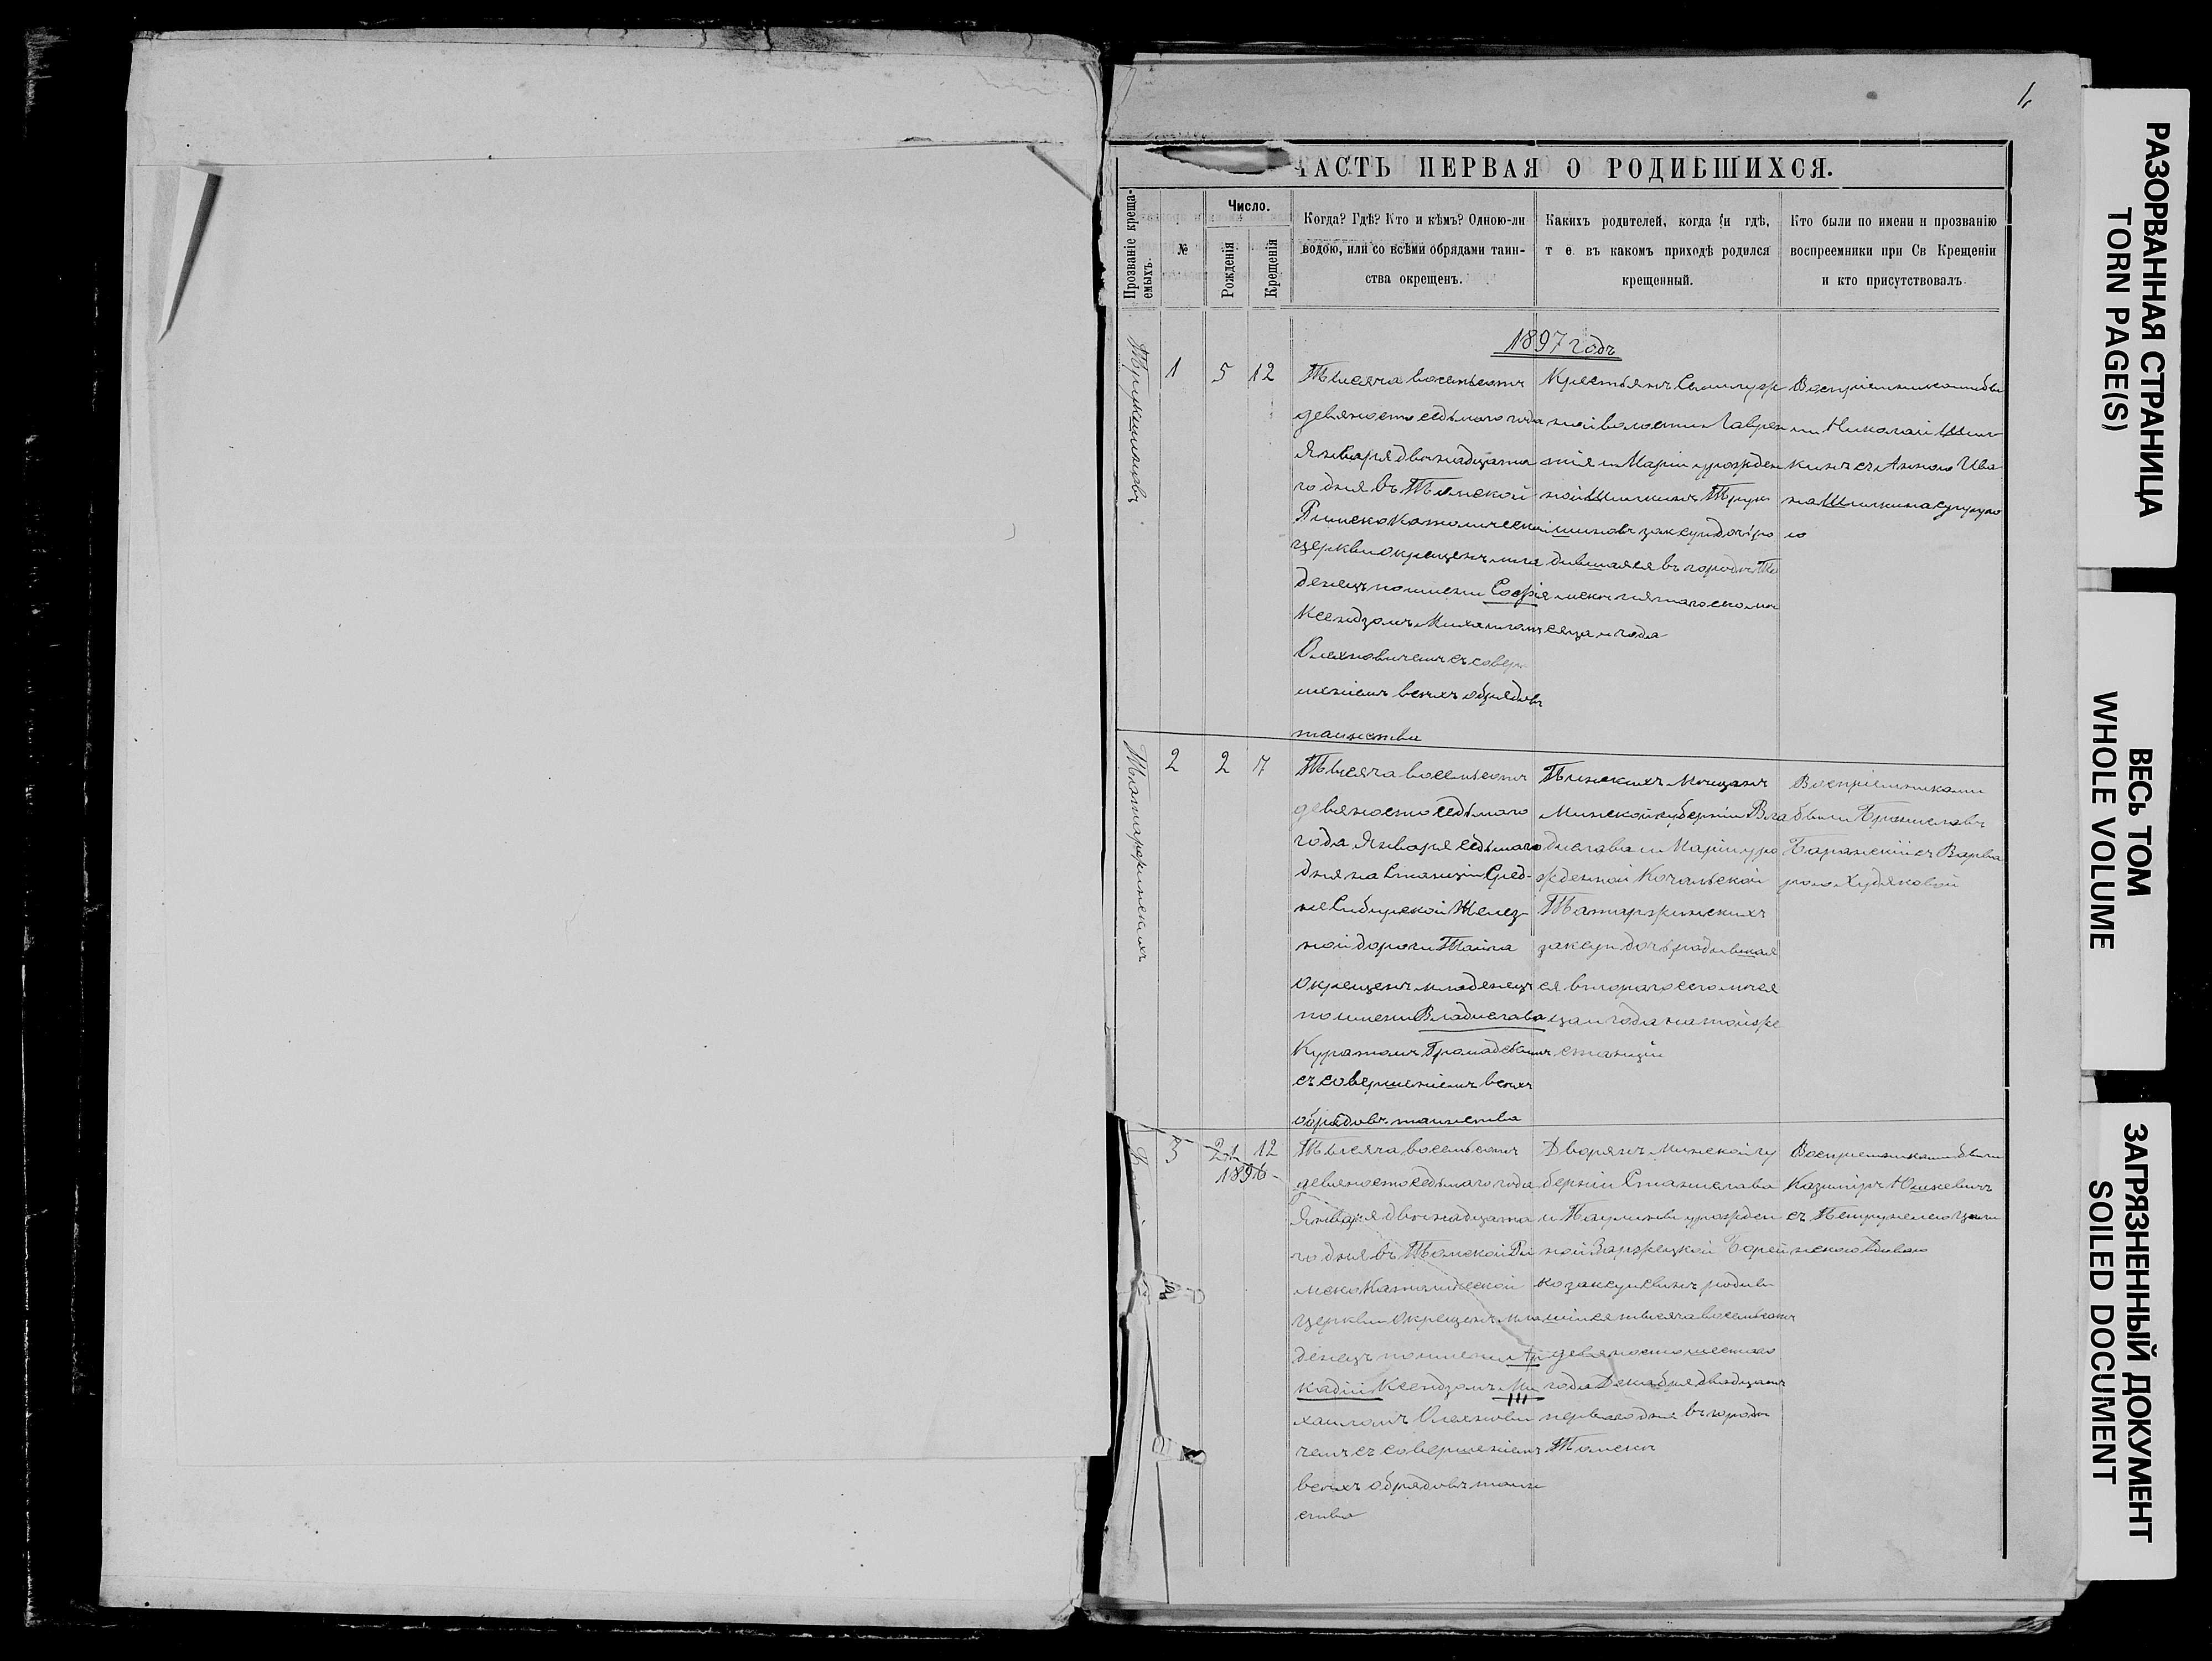 1
ЧАСТЬ ПЕРВАЯ О РОДИВШИХСЯ.
Прозваніе креща-
емыхъ.
№
Число.
Рожденія
Крещенія
Когда? Гдѣ? Кто и кѣмъ? Одною-ли
водою, или со всѣми обрядами таин-
ства окрещенъ.
Какихъ родителей, когда и гдѣ,
т е. въ какомъ приходѣ родился
крещенный.
Кто были по имени и прозванію
воспреемники при Св Крещеніи
и кто присутствовалъ
1897 годъ
1
5
12
Тысяча восемьсотъ
девяносто седьмого года
Января двѣнадцата
го дня въ Томской
Римско Католической
церкви окрещенъ мла
денецъ по имени Софія
Ксендзомъ Михаиломъ
Олехновичемъ съ совер
шеніемъ всѣхъ обрядовъ
таинства
Крестьянъ
ной волости Лаврен
тія и Маріи урожден
ной
законн дочь ро
дившаяся въ городѣ То
мскѣ пятаго сего мѣ
сяца и года
Воспріемниками бы
ли Николай
съ Анною Ива
на
ю
Татаржинскихъ
2
2
7
Тысяча восемьсотъ
девяносто седьмого
года Января седьмаго
дня на Станціи Сред-
не Сибирской Желез-
ной дороги Тайга
окрещенъ младенецъ
по имени Владислава
Куратомъ Громадскимъ
съ совершеніемъ всѣхъ
обрядовъ таинства
Пинскихъ Мѣщанъ
Минской губерніи Вла
дислава и Маріи уро
жденной Качальской
Татаржинскихъ
закон дочь родившая
ся втораго сего мѣся
ца и года на той же
станціи
Воспріемниками
были Брониславъ
Баранскій съ Варва
рою Худяковой
3
21
1896
12
Тысяча восемьсотъ
девяносто седьмаго года
Января двѣнадцата
го дня въ Томской Ри
мско Католической
церкви окрещенъ мла
денецъ по имени Ар
кадій Ксендзомъ Ми
хаиломъ Олехнови
чемъ съ совершеніемъ
всѣхъ обрядовъ таин
ства
Дворянъ Минской гу
берніи Станислава
и Паулины урожден
ной Заржецкой
законн сынъ родив
шійся тысяча восемьсотъ
девяносто шестого
года Декабря двадцать
перваго дня въ городѣ
Томскѣ
Воспріемниками были
Казимиръ Юшкевичъ
съ Петрунелею
вдовою
РАЗОРВАННАЯ СТРАНИЦА
TORN PAGE(S)
ВЕСЬ ТОМ
WHOLE VOLUME
ЗАГРЯЗНЕННЫЙ ДОКУМЕНТ
SOILED DOCUMENT